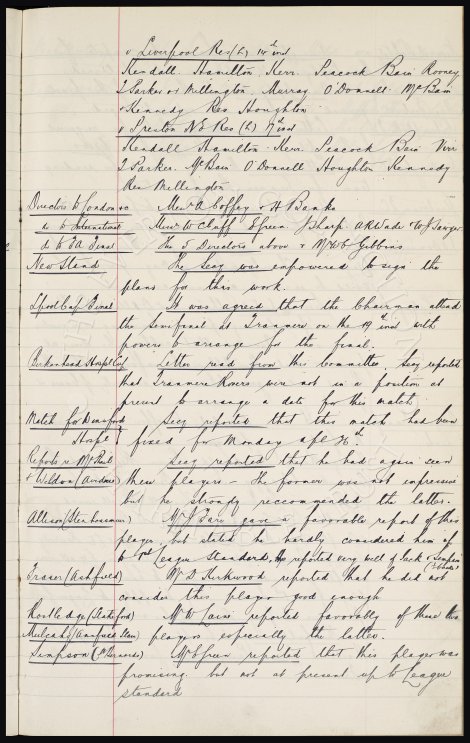 v Liverpool Res (L) 14th inst
Kendall. Hamilton. Kerr. Peacock Bain Rooney
J Parker or Millington. Murray. O'Donnell. McBain
& Kennedy Res Houghton
v Preston N E Res (L) 17th inst
Kendall Hamilton. Kerr. Peacock Bain Virr
J Parker. McBain O'Donnell Houghton Kennedy
Res Millington
Directors to London &c Messrs A Coffey & H Banks
do to International Messrs W C Cuff E Green J Sharp. A R Wade & W J Sawyer
do to E A Final The 5 Directors above & Mr W C Gibbins
New Stand The Secy was empowered to sign the
plans for this work.
Lpool Cup Final It was agreed that the Chairman attend
the Semifinal at Tranmere on the 19th inst with
powers to arrange for the final.
Birkenhead Hospl Cup Letter read from this committee. Secy reported
that Tranmere Rovers were not in a position at
present to arrange a date for this match
Match for Secy reported that this match had been
Hospl fixed for Monday apl
Reports re McPhail Secy reported that he had again seen
& Weldon (Airdrie) these players - The former was not impressive
but he strongly reccommended the latter.
Allison (Stenhousemuir) Mr J Fare gave a favorable report of this
player but stated he hardly considered him up
to 1st League Standard, He reported very well of & Simpson
Fraser (Ashfield) Mr D Kirkwood reported that he did not
consider this player good enough
Rostledge Mr W reported favorably of these two
players especially the latter.
Simpson Mr E Green reported that this player was
promising but not at present up to League
standard